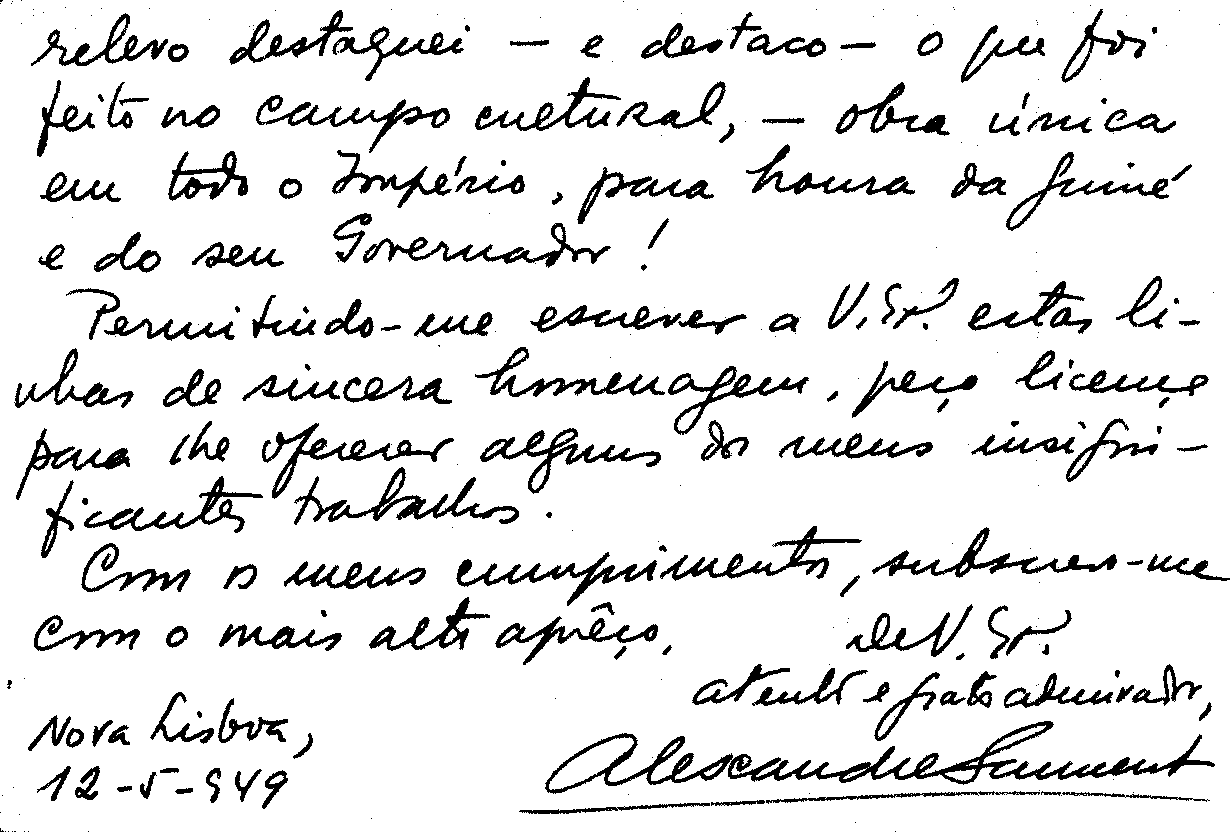 relevo destaquei — e destaco — o que foi
feito no campo cultural, — obra única
em todo o Império, para honra da Guiné
e do seu Governador!
Permitindo-me escrever a V. Exª. estas li-
nhas de sincera homenagem, peço licença
para lhe oferecer alguns dos meus insigni-
ficantes trabalhos.
Com os meus cumprimentos, subscrevo-me
com o mais alto aprêço,
De V. Exª.
atento e grato admirador,
Nova Lisboa,
12-5-949
Alexandre Sarmento